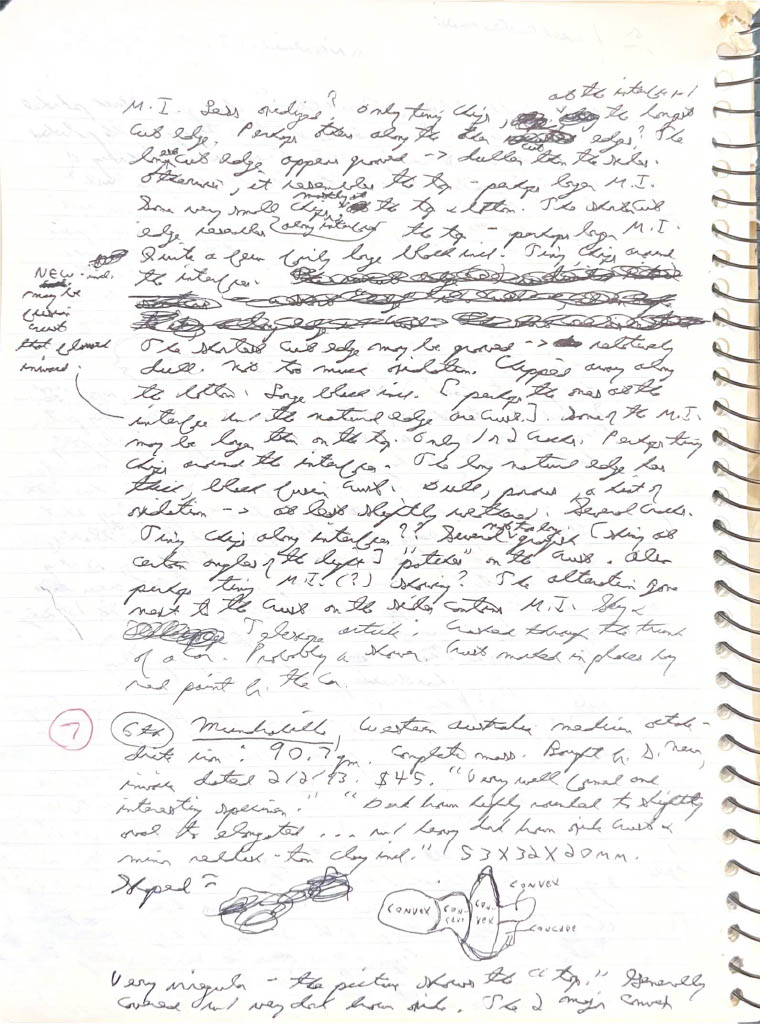 at the interface
M.I. Less oxidized? Only tiny chips, the longest
cut edge. Perhaps others along the other cut edges? The
long cut edge appears ground -> duller than the sides.
Otherwise, it resembles the top - perhaps larger M.I.
Some very small chips, mostly the top & bottom. The shortest cut
edge resembles along interface the top - perhaps larger M.I.
Quite a few fairly large black incl. Tiny chips around
the interface.
NEW - incl.
may be
fusion
crust
that flowed
inward.
The shortest cut edge may be ground -> relatively
dull. Not too much oxidation. Chipped away along
the bottom. Large black incl. [perhaps the ones at the
interface w/ the natural edge are crust]. Some of the M.I.
may be larger than on the top. Only 1 or 2 cracks. Perhaps tiny
chips around the interface. The long natural edge has
thick, black fusion crust. Dull, porous, a hint of
oxidation -> at least slightly weathered. Several cracks.
Tiny chips along interface?? Several not too big grayish [shiny at
certain angles of the light] "patches" on the crust. Also
perhaps tiny M.I.s (?) showing? The alteration zone
next to the crust on the sides contains M.I. Sky &
Telescope article: Crashed through the trunk
of a car. Probably a shower. Crust marked in places by
red paint fr. the car.
7 6th Mundrabilla, Western Australia medium octahe-
drite iron: 90.7 gm. Complete mass. Bought fr. D. New,
invoice dated 2/2/93. $45. "Very well formed and
interesting specimen." "Dark brown highly rounded to slightly
oval to elongated ... w/ heavy dark brown oxide crust &
minor reddish-tan clay incl." 53X32X20mm.
Shaped =
CONVEX
CON-
CAVE
CON-
VEX
CONVEX
CONCAVE
Very irregular - the picture shows the "top." Generally
covered w/ very dark brown oxide. The 2 major convex